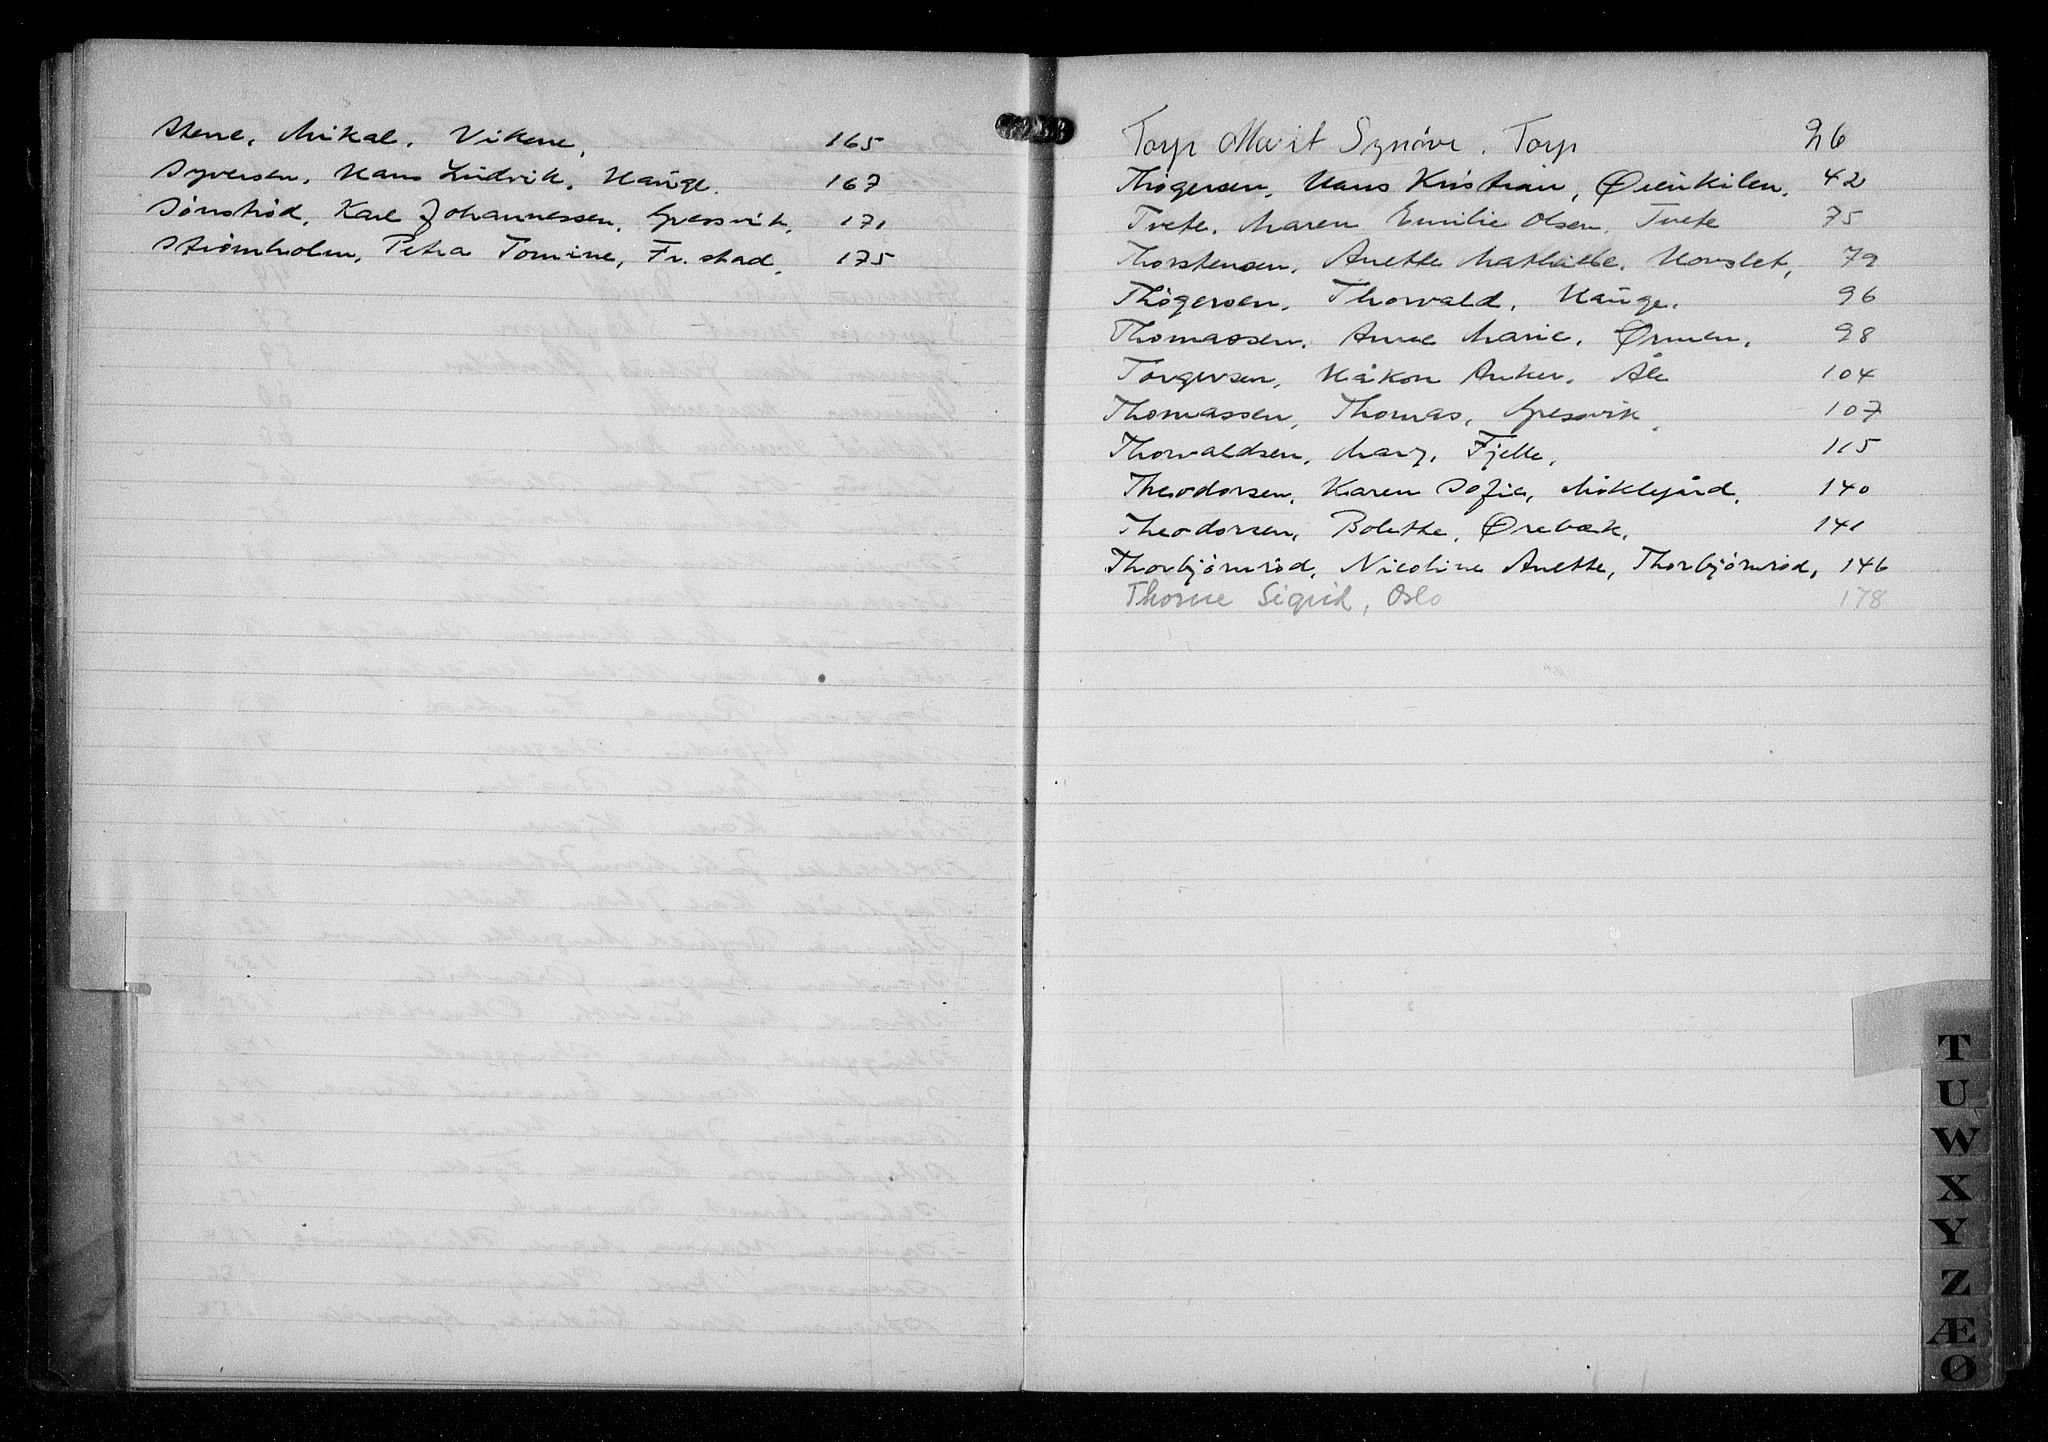 Stene, Mikal, Vikene, 165
Syversen, Hans Ludvik, Hauge. 167
Sønstrød, Karl Johannessen, Gressvik, 171
Strømholm, Petra Tomine, Fr.stad, 175
Torp Marit Synøve. Torp 26
Thøgersen, Hans Kristian, Øienkilen, 42
Tvete, Maren Emilie Olsen, Tvete 75
Thorstensen, Anette Mathilde, Hovslet, 79
Thøgersen, Thorvald, Hauge. 96
Thomassen, Anne Marie, Ørmen, 98
Torgersen, Håkon Anker, Åle 104
Thomassen, Thomas, Gressvik, 107
Thorvaldsen, Mary, Fjelle, 115
Theodorsen, Karen Sofie, Møklegård, 140
Theodorsen, Bolette, Ørebæk, 141
Thorbjørnrød, Nicoline Anette, Thorbjørnrød, 146
Thorne Sigrid, Oslo 178
T
U
W
X
Y
Z
Æ
Ø